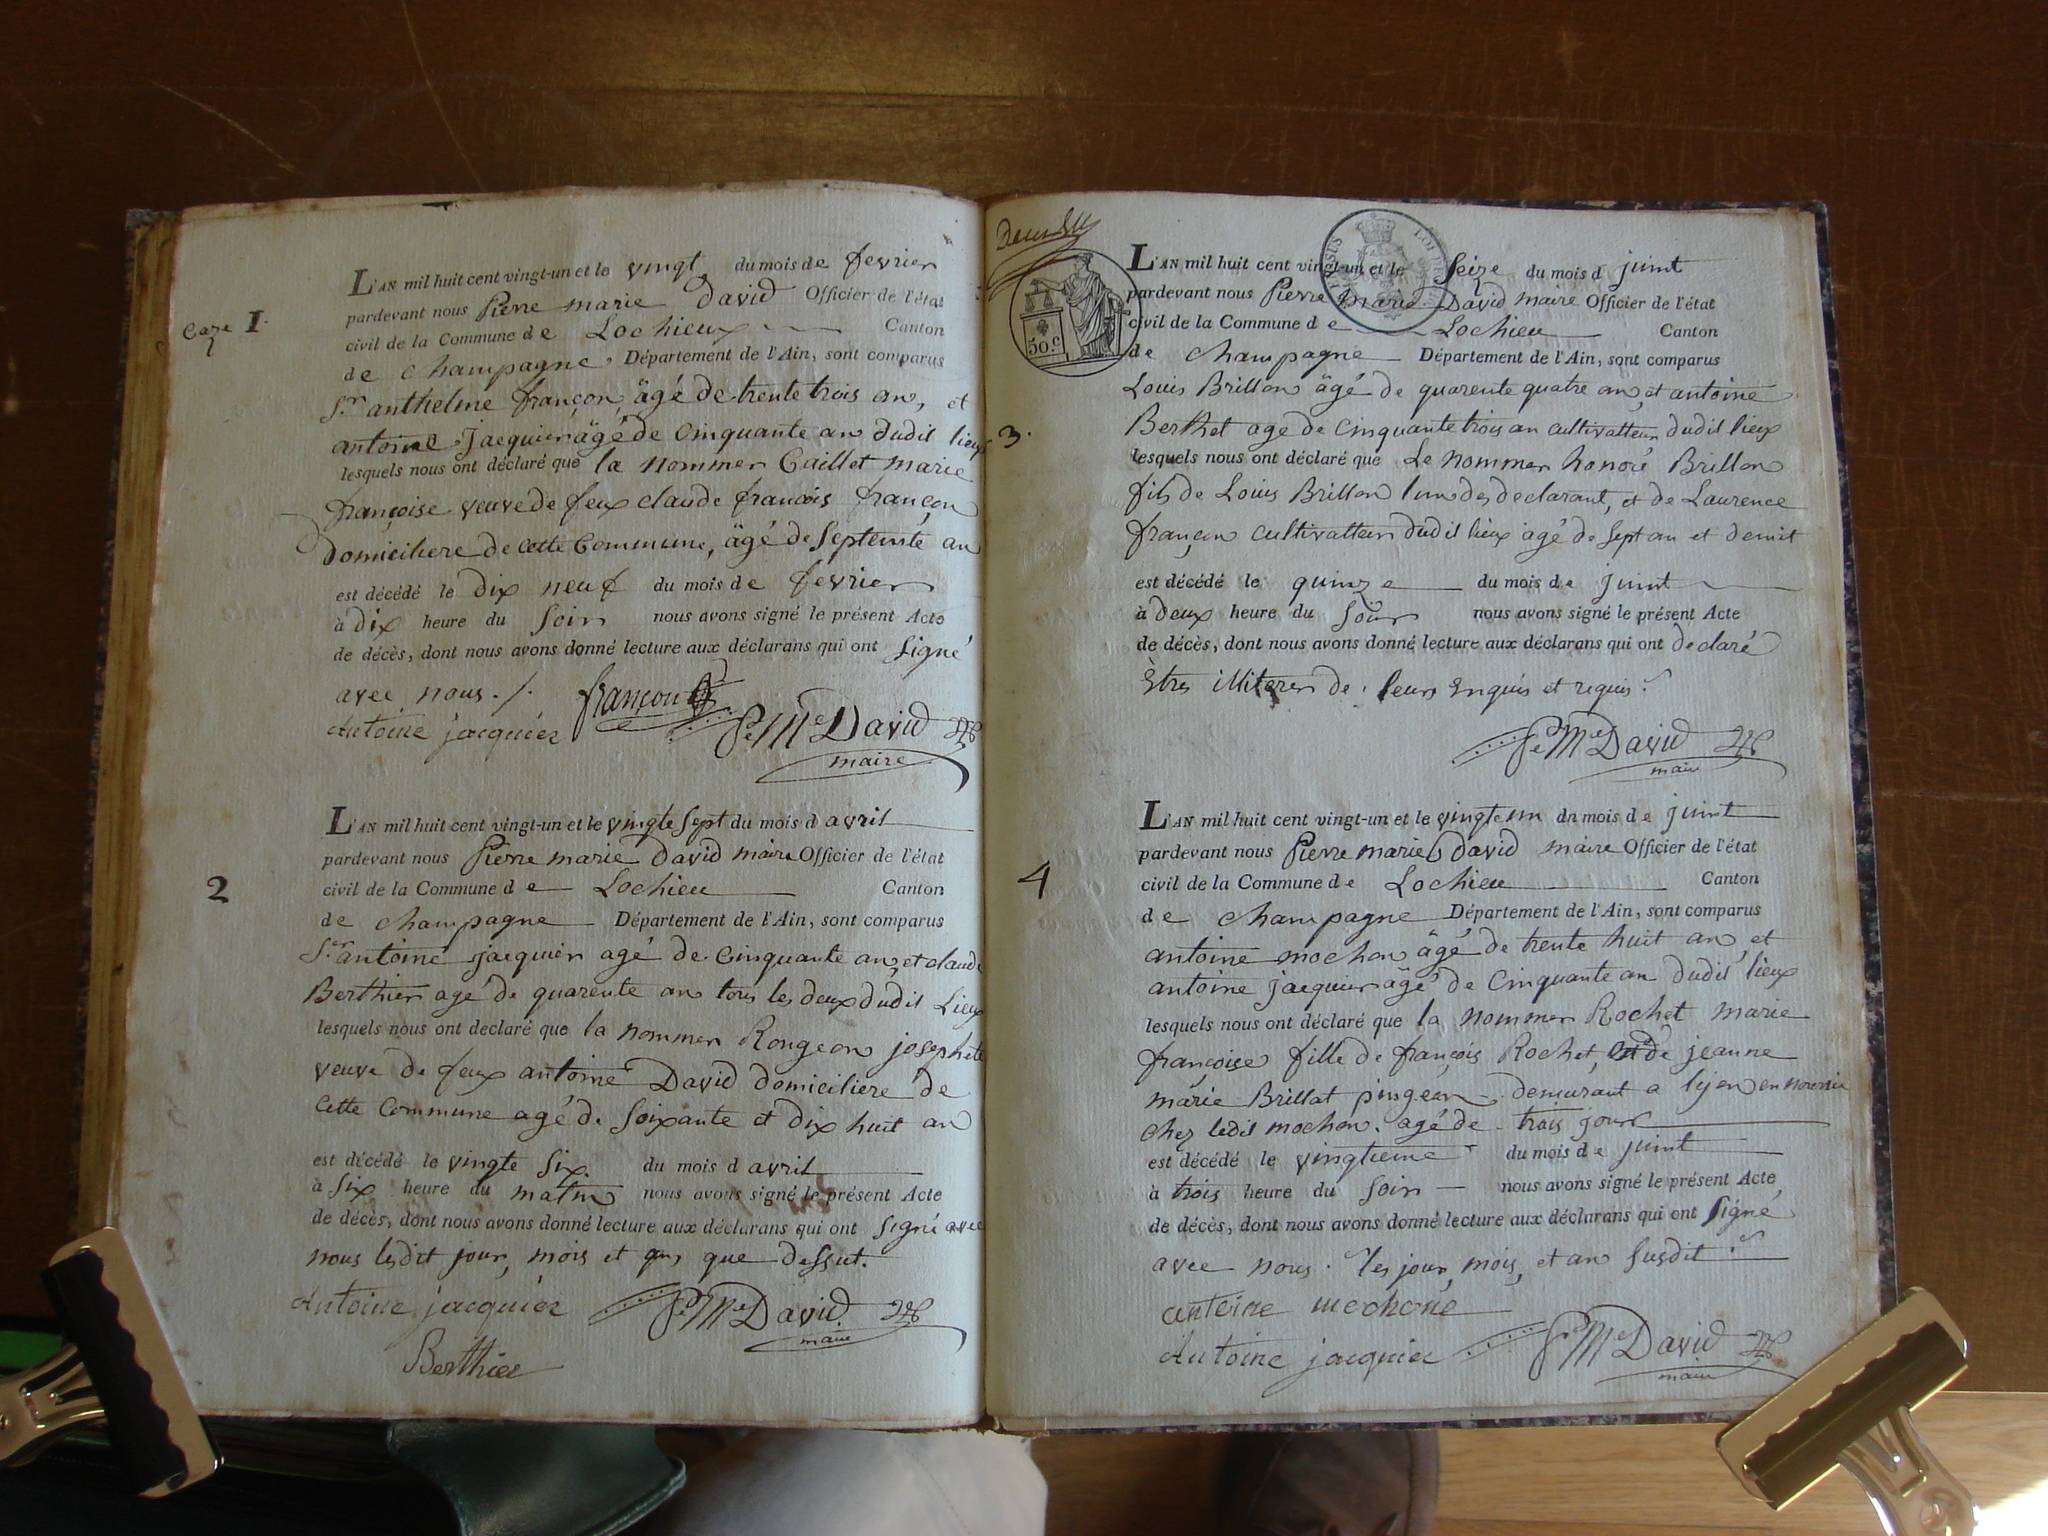 L'AN mil huit cent vingt-un et le vingt du mois de fevrier
1.
pardevant nous Pierre marie david Officier de l'état
civil de la Commune de Lochieux Canton
de champagne Département de l'Ain, sont comparus
S.r anthelme françon, âgé de trente trois an, et
antoine jacquier âgé de Cinquante an dudit lieux
lesquels nous ont déclaré que la nommer Caillet marie
françoise veuve de feux claude francois françon
Domiciliere de cette Commune, âgé de Septente an
est décédé le dix neuf du mois de fevrier
à dix heure du Soir nous avons signé le présent Acte
de décès, dont nous avons donné lecture aux déclarans qui ont Signé
avec nous ./.
françon
Antoine jacquier P.e M.e David
maire
L'AN mil huit cent vingt-un et le vingte Sept du mois d avril
pardevant nous Pierre marie David maire Officier de l'état
2
civil de la Commune de Lochieu Canton
de champagne Département de l'Ain, sont comparus
S.r antoine jacquier agé de Cinquante an, et claude
Berthier agé de quarente an tous les deux dudit Lieux
lesquels nous ont declaré que la nommer Rongeon josephete
veuve de feux antoine David domiciliere de
Cette Commune agé de Soixante et dix huit an
est décédé le vingte Six. du mois d avril
à Six heure du matin nous avons signé le présent Acte
de décès, dont nous avons donné lecture aux déclarans qui ont Signé avec
nous ledit jour, mois et an, que dessut.
Antoine jacquier P.e M.e David
maire
Berthier
L'AN mil huit cent vingt-un et le Seize du mois d juint
pardevant nous Pierre Marie David maire Officier de l'état
civil de la Commune de Lochieu Canton
50.c
de champagne Département de l'Ain, sont comparus
Louis Brillon âgé de quarente quatre an, et antoine
3.
Berthet age de Cinquante trois an cultivatteur dudit lieux
lesquels nous ont déclaré que Le nommer honoré Brillon
fils de Louis Brillon l'un des declarant, et de Laurence
françon cultivatteur dudit lieux agé de Sept an et demit
est décédé le quinze du mois de juint
à deux heure du Soir nous avons signé le présent Acte
de décès, dont nous avons donné lecture aux déclarans qui ont declaré
Êtres illiterer de leurs Enquis et requis
P.e M.e David
maire
L'AN mil huit cent vingt-un et le vingte un du mois de juint
pardevant nous Pierre marie David maire Officier de l'état
4
civil de la Commune de Lochieu Canton
de champagne Département de l'Ain, sont comparus
antoine mochon âgé de trente huit an, et
antoine jacquier âgé de Cinquante an dudit lieux
lesquels nous ont déclaré que la nommer Rochet marie
françoise fille de françois Rochet, et de jeanne
marie Brillat pingeon, demurant a lijon en nourrice
chez ledit mochon. agé de trois jour
est décédé le vingtieme du mois de juint
à trois heure du Soir nous avons signé le présent Acte
de décès, dont nous avons donné lecture aux déclarans qui ont Signé
avec nous. les jour, mois, et an Susdit
antoine mochone
Antoine jacquier P.e M.e David
maire